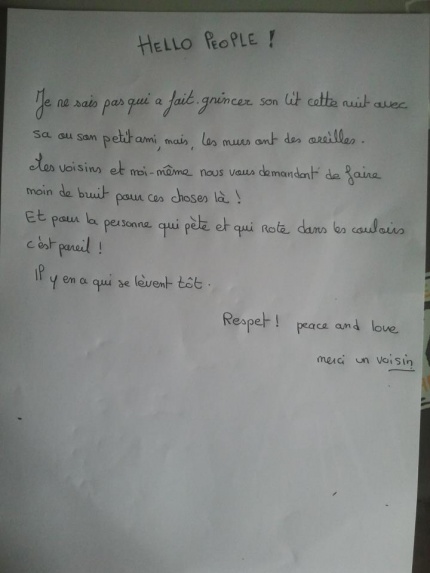 HELLO PEOPLE !
Je ne sais pas qui a fait grincer son lit cette nuit avec
sa ou son petit ami, mais, les murs ont des oreilles.
Les voisins et moi-même nous vous demandont de faire
moin de bruit pour ces choses là !
Et pour la personne qui pète et qui rote dans les couloirs
c'est pareil !
Il y en a qui se lèvent tôt.
Respet ! peace and love
merci un voisin